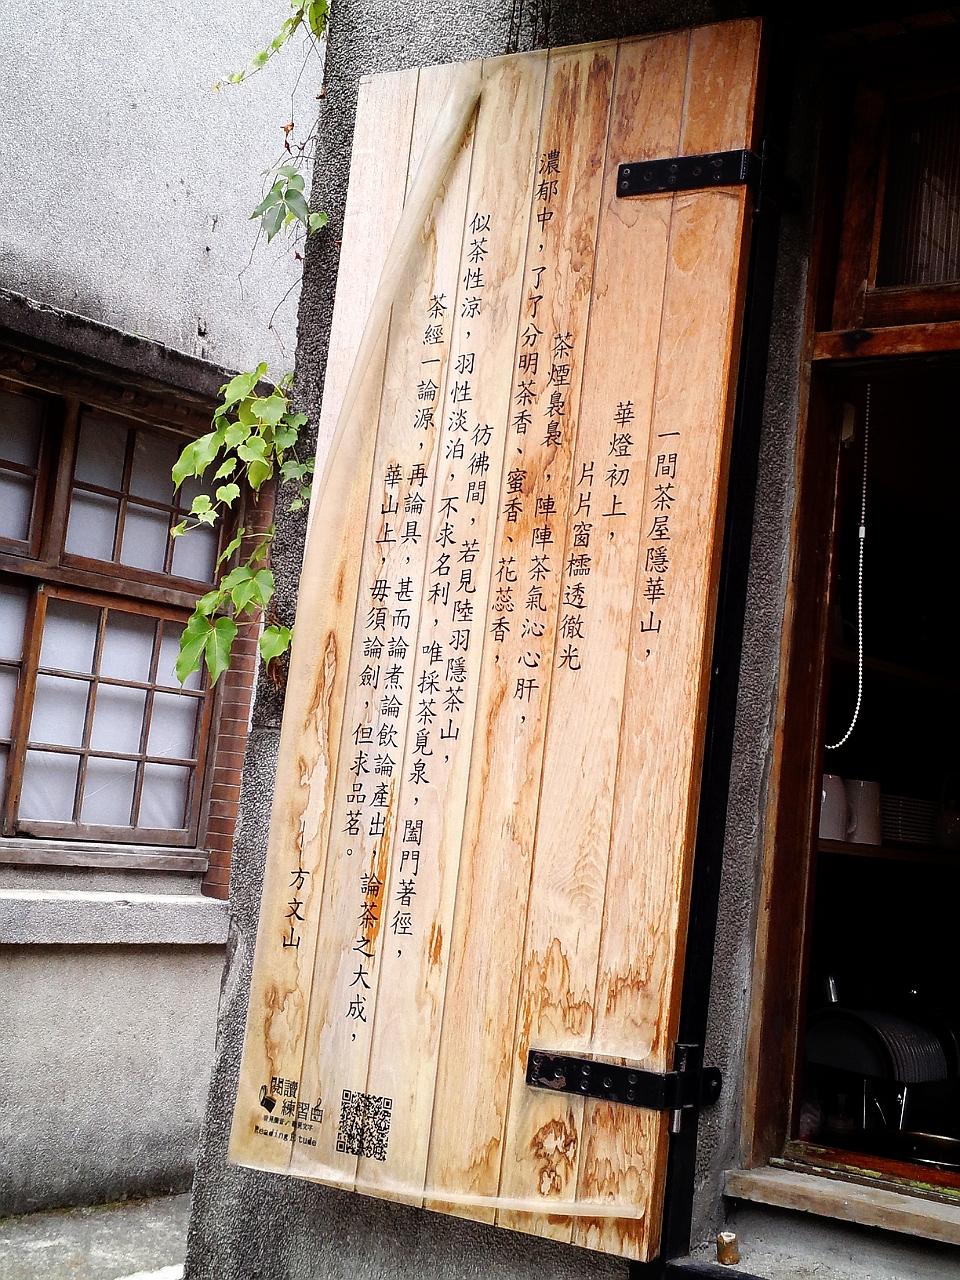 一間茶屋隱華山，
華燈初上，
片片窗櫺透徹光
茶煙裊裊，陣陣茶氣沁心肝，
濃郁中，了了分明茶香、蜜香、花蕊香，
彷彿間，若見陸羽隱茶山，
似茶性涼，羽性淡泊，不求名利，唯採茶覓泉，闔門著徑，
茶經一論源，再論具，甚而論煮論飲論產出，論茶之大成，
華山上，毋須論劍，但求品茗。
方文山
閱讀
練習曲
Reading Etude